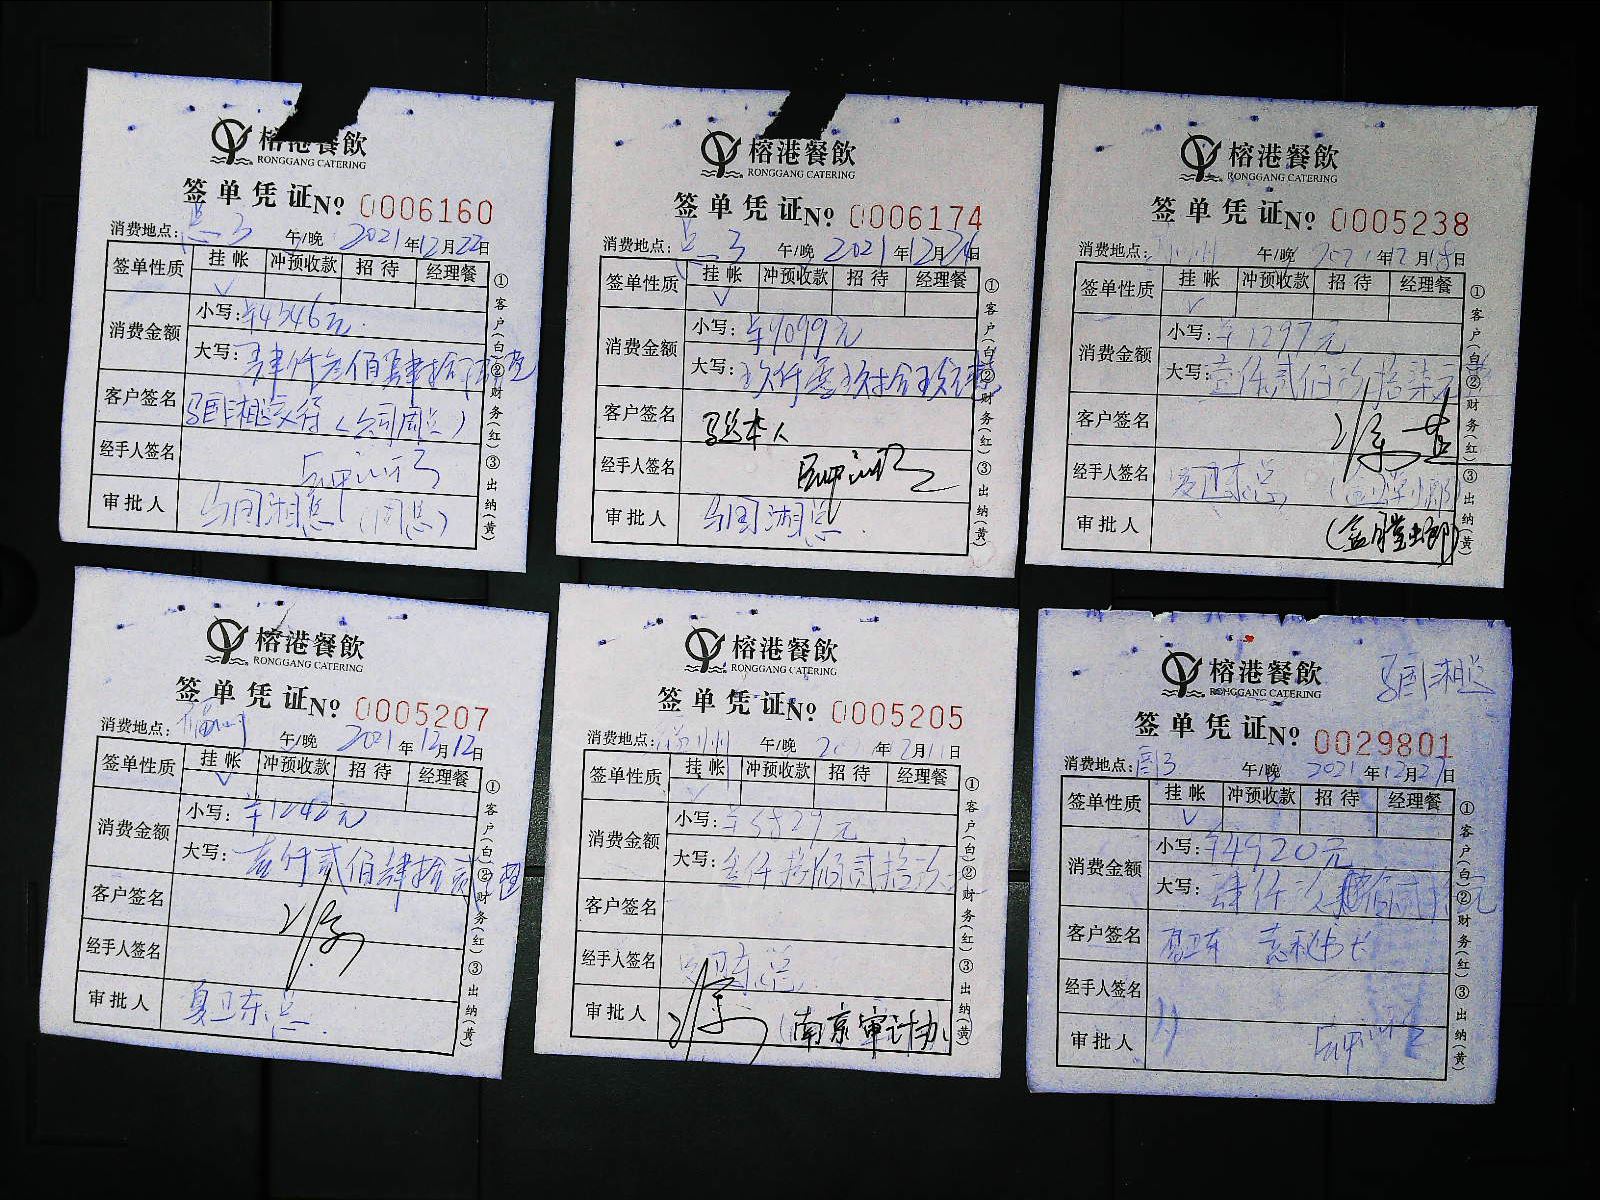 榕港餐飲
RONGGANG CATERING
签单凭证№ 0006160
消费地点: 午/晚 2021年12月22日
签单性质 挂帐 冲预收款 招待 经理餐
√
消费金额 小写: ¥4346元
大写: 肆仟叁佰肆拾 整
客户签名 (公司周总)
经手人签名
审批人 马国湘总 (周总)
①客户(白)②财务(红)③出纳(黄)
榕港餐飲
RONGGANG CATERING
签单凭证№ 0006174
消费地点: 午/晚 2021年12月26日
签单性质 挂帐 冲预收款 招待 经理餐
√
消费金额 小写: ¥9099元
大写: 玖仟零玖拾玖元整
客户签名 马总本人
经手人签名
审批人 马国湘总
①客户(白)②财务(红)③出纳(黄)
榕港餐飲
RONGGANG CATERING
签单凭证№ 0005238
消费地点: 午/晚 2021年12月18日
签单性质 挂帐 冲预收款 招待 经理餐
√
消费金额 小写: ¥1297元
大写: 壹仟贰佰玖拾柒元整
客户签名
经手人签名 夏卫东总
审批人
①客户(白)②财务(红)③出纳(黄)
榕港餐飲
RONGGANG CATERING
签单凭证№ 0005207
消费地点: 福州 午/晚 2021年12月12日
签单性质 挂帐 冲预收款 招待 经理餐
√
消费金额 小写: ¥1242元
大写: 壹仟贰佰肆拾贰 整
客户签名
经手人签名
审批人 夏卫东总
①客户(白)②财务(红)③出纳(黄)
榕港餐飲
RONGGANG CATERING
签单凭证№ 0005205
消费地点: 福州 午/晚 2021年12月11日
签单性质 挂帐 冲预收款 招待 经理餐
√
消费金额 小写: ¥3829元
大写: 叁仟捌佰贰拾玖
客户签名
经手人签名 夏卫东总
审批人 (南京审计办)
①客户(白)②财务(红)③出纳(黄)
榕港餐飲
RONGGANG CATERING
马国湘总
签单凭证№ 0029801
消费地点: 午/晚 2021年12月27日
签单性质 挂帐 冲预收款 招待 经理餐
√
消费金额 小写: ¥4920元
大写: 肆仟玖佰贰拾元
客户签名 夏卫东 袁秘书长
经手人签名
审批人
①客户(白)②财务(红)③出纳(黄)